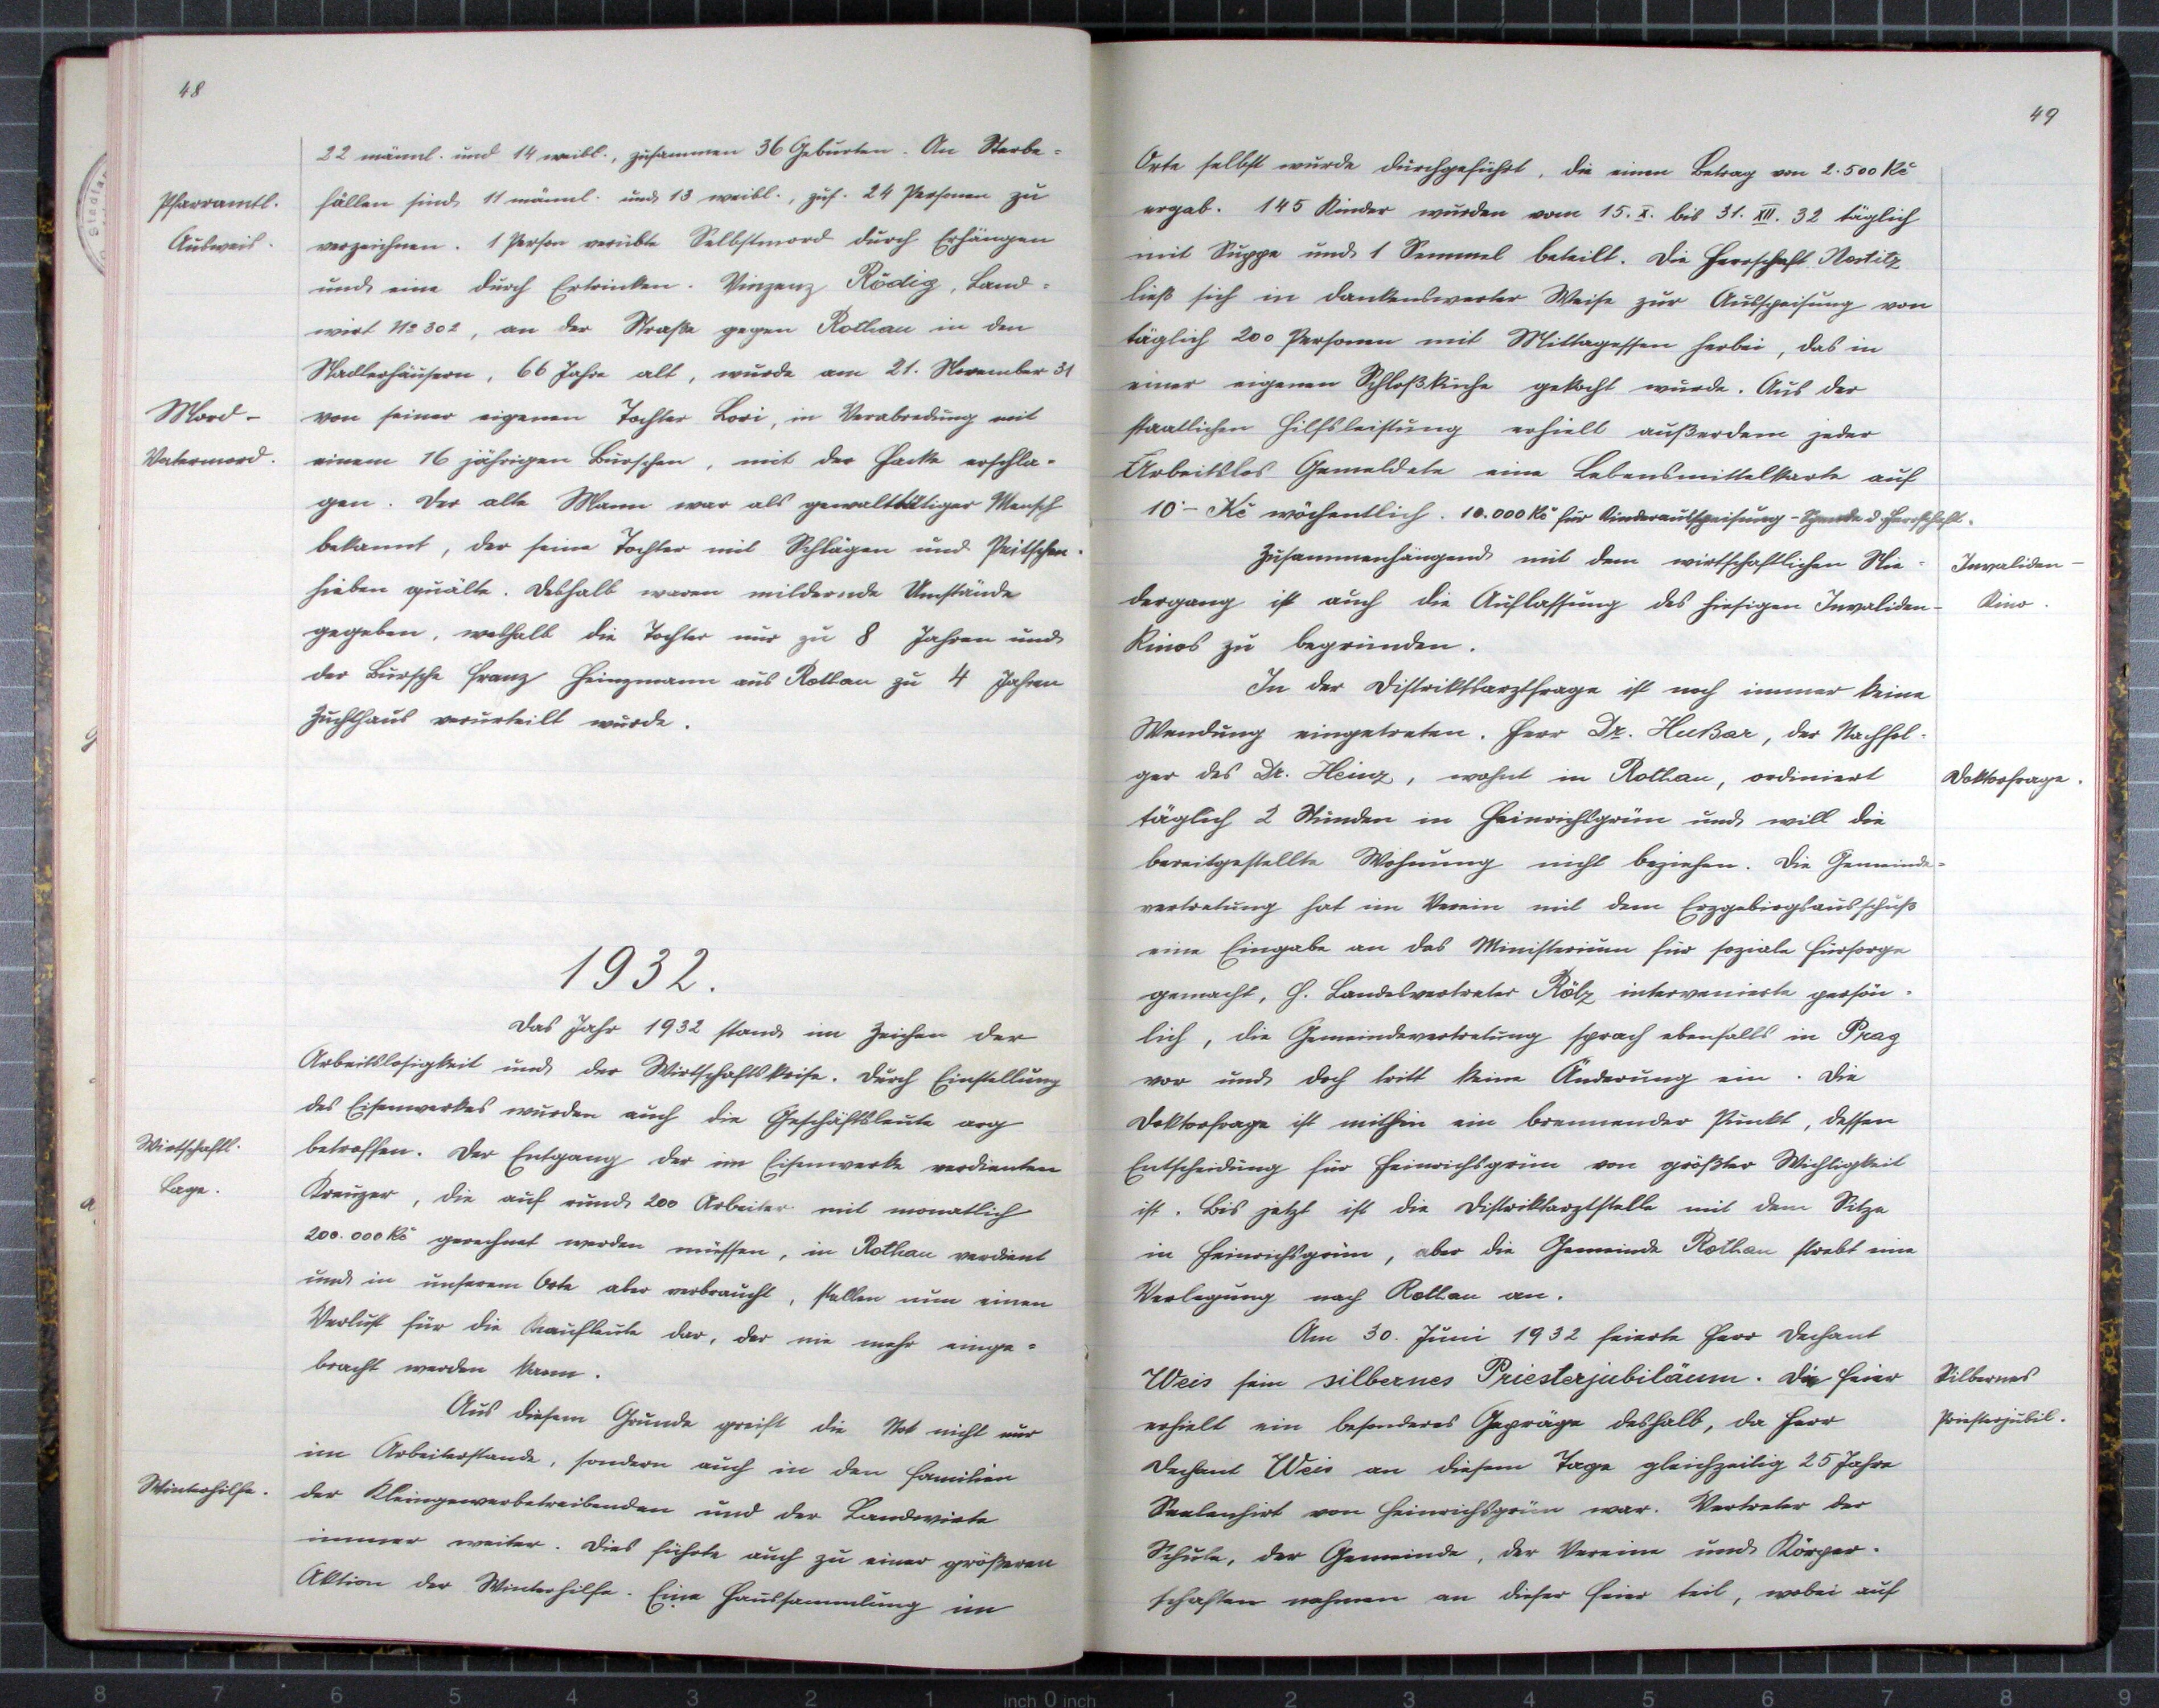 48
22 männl. und 14 weibl., zusammen 36 Geburten. An Sterbe=
Pfarramtl.
fällen sind 11 männl. und 13 weibl., zus. 24 Personen zu
Ausweis.
verzeichnen. 1 Person verübte Selbstmord durch Erhängen
und eine durch Ertrinken. Vinzenz Rödig, Land=
wirt No 302, an der Straße gegen Rothau in den
Stadlerhäusern, 66 Jahre alt, wurde am 21. November 31
Mord -
von seiner eigenen Tochter Lori, in Verabredung mit
Vatermord.
einem 16 jährigen Burschen, mit der Hacke erschla-
gen. Der alte Mann war als gewalttätiger Mensch
bekannt, der seine Tochter mit Schlägen und Peitschen-
hieben quälte. Deshalb waren mildernde Umstände
gegeben, weshalb die Tochter nur zu 8 Jahren und
der Bursche Franz Heinzmann aus Rothau zu 4 Jahren
Zuchthaus verurteilt wurde.
1932.
Das Jahr 1932 stand im Zeichen der
Arbeitslosigkeit und der Wirtschaftskrise. Durch Einstellung
des Eisenwerkes wurden auch die Geschäftsleute arg
Wirtschaftl.
betroffen. Der Entgang der im Eisenwerke verdienten
Lage.
Kreuzer, die auf rund 200 Arbeiter mit monatlich
200.000 Kč gerechnet werden müssen, in Rothau verdient
und in unserem Orte aber verbraucht, stellen nun einen
Verlust für die Kaufleute dar, der nie mehr einge=
bracht werden kann.
Aus diesem Grunde greift die Not nicht nur
im Arbeiterstande, sondern auch in den Familien
Winterhilfe.
der Kleingewerbetreibenden und der Landwirte
immer weiter. Dies führte auch zu einer größeren
Aktion der Winterhilfe. Eine Haussammlung im
49
Orte selbst wurde durchgeführt, die einen Betrag von 2.500 Kč
ergab. 145 Kinder wurden vom 15. X. bis 31. XII. 32 täglich
mit Suppe und 1 Semmel beteilt. Die Herrschaft Nostitz
ließ sich in dankenswerter Weise zur Ausspeisung von
täglich 200 Personen mit Mittagessen herbei, das in
einer eigenen Schloßküche gekocht wurde. Aus der
staatlichen Hilfsleistung erhielt außerdem jeder
Arbeitslos Gemeldete eine Lebensmittelkarte auf
10·- Kč wöchentlich. 10.000 Kč für Kinderausspeisung - Spende d Herrschaft.
Zusammenhängend mit dem wirtschaftlichen Nie-
Invaliden-
dergang ist auch die Auflassung des hiesigen Invaliden-
Kino.
Kinos zu begründen.
In der Distriktsarztfrage ist noch immer keine
Wendung eingetreten. Herr Dr. Hußar, der Nachfol-
ger des Dr. Heinz, wohnt in Rothau, ordiniert
Doktorfrage.
täglich 2 Stunden in Heinrichsgrün und will die
bereitgestellte Wohnung nicht beziehen. Die Gemeinde=
vertretung hat im Verein mit dem Erzgebirgsausschuß
eine Eingabe an das Ministerium für soziale Fürsorge
gemacht, H. Landesvertreter Rölz intervenierte persön-
lich, die Gemeindevertretung sprach ebenfalls in Prag
vor und doch tritt keine Änderung ein. Die
Doktorfrage ist mithin ein brennender Punkt, dessen
Entscheidung für Heinrichsgrün von größter Wichtigkeit
ist. Bis jetzt ist die Distriktarztstelle mit dem Sitze
in Heinrichsgrün, aber die Gemeinde Rothau strebt eine
Verlegung nach Rothau an.
Am 30. Juni 1932 feierte Herr Dechant
Weis sein silbernes Priesterjubiläum. Die Feier
Silbernes
erhielt ein besonderes Gepräge deshalb, da Herr
Priesterjubil.
Dechant Weis an diesem Tage gleichzeitig 25 Jahre
Seelenhirt von Heinrichsgrün war. Vertreter der
Schule, der Gemeinde, der Vereine und Körper-
schaften nahmen an dieser Feier teil, wobei auf
8 7 6 5 4 3 2 1 inch 0 inch 1 2 3 4 5 6 7 8 9